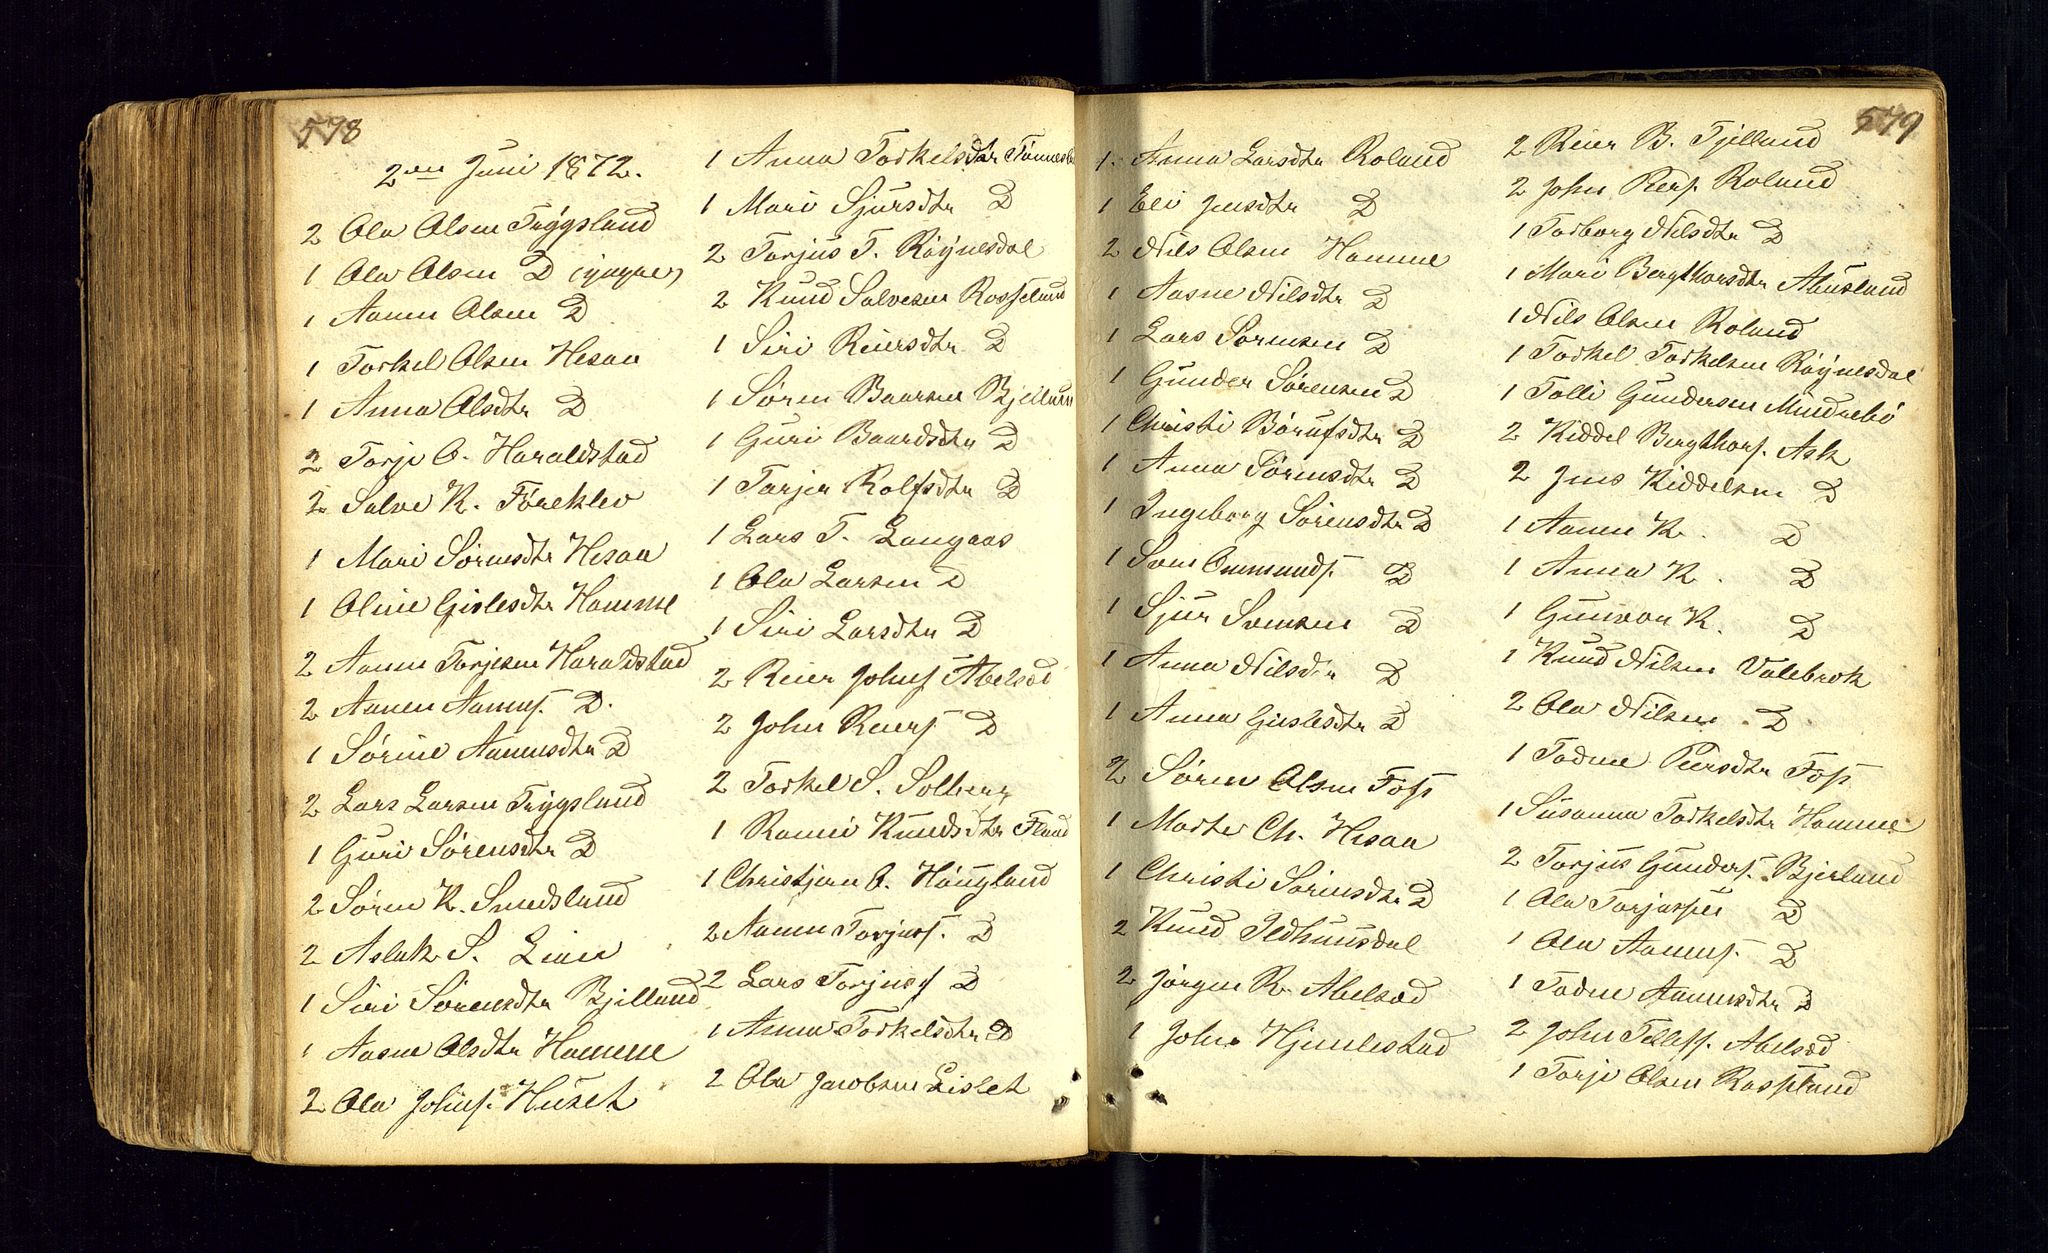 578
2den Juni 1872.
2 Ola Olsen Trygsland
1 Ola Olsen D (yngre)
1 Aanen Olsen D
1 Torkel Olsen Hesaa
1 Anna Olsdtr D
2 Torje O. Haraldstad
2 Salve K. Föreklev
1 Mari Sörensdtr Hesaa
1 Oline Gislesdtr Homme
2 Aanen Torjesen Haraldstad
2 Aanen Aanens. D.
1 Sörine Aanensdtr D
2 Lars Larsen Trygsland
1 Guri Sörensdtr D
2 Sören K. Smedsland
2 Aslak S. Lien
1 Siri Sörensdtr Bjelland
1 Aasne Olsdtr Homme
2 Ola Johns. Huset
1 Anna Torkelsdtr
1 Mari Sjursdtr D
2 Torjus T. Röynesdal
2 Knud Salvesen Rosseland
1 Siri Reiersdtr D
1 Sören Baarsen Bjelland
1 Guri Baardsdtr D
1 Torjer Rolfsdtr D
1 Lars T. Langaas
1 Ola Larsen D
1 Siri Larsdtr D
2 Reier Johns. Abelsød
2 John Reiers. D
2 Torkel S. Solberg
1 Ramei Knudsdtr
1 Christjan O. Höugland
2 Aanen Torjuss. D
2 Lars Torjuss. D
1 Anna Torkelsdtr D
2 Ola Jacobsen Lislet
579
1. Anna Larsdtr Roland
1 Eli Jensdtr D
2 Nils Olsen Homme
1 Aasne Nilsdtr D
1 Lars Sörensen D
1 Gunder Sörensen D
1 Christi Börufsdtr D
1 Anna Sörensdtr D
1 Ingeborg Sörensdtr D
1 Sven Ommunds. D
1 Sjur Svensen D
1 Anna Nilsdtr D
1 Anna Gislesdtr D
2 Sören Olsen Foss
1 Marte Ch. Hesaa
1 Christi Sörensdtr D
2 Knud Ildhuusdal
2 Jörgen R. Abelsød
1 John Hjemlestad
2 Reier B. Tjelland
2 John Piers. Roland
1 Torborg Nilsdtr D
1 Mari Bergthorsdtr Ahusland
1 Nils Olsen Roland
1 Torkel Torkelsen Röynesdal
1 Tolli Gundersen Mindrebö
2 Kiddel Bergthors. Ask
2 Jens Kiddelsen D
1 Aanen K. D
1 Anna K. D
1 Gunvor K. D
1 Knud Nilsen Valebrok
2 Ola Nilsen D
1 Todne Piersdtr Foss
1 Susanna Torkelsdtr Homme
2 Torjus Gunders. Bjerland
1 Ola Torjussen D
1 Ola Aanens. D
1 Todne Aanensdtr D
2 John Tellefs. Abelsød
1 Torje Olsen Rosseland